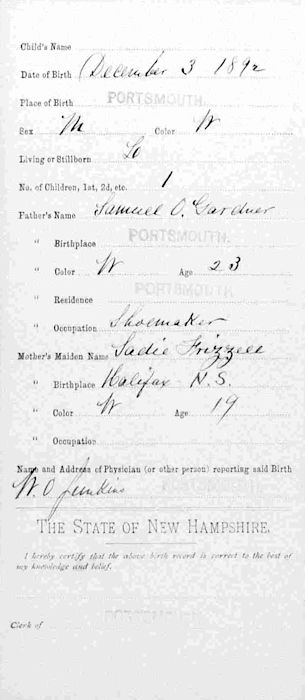 Child's Name
Date of Birth December 3 1892
Place of Birth PORTSMOUTH.
Sex M Color W
Living or Stillborn L
No. of Children, 1st, 2d, etc. 1
Father's Name Samuel O. Gardner
" Birthplace PORTSMOUTH.
" Color W Age 23
" Residence PORTSMOUTH
" Occupation Shoemaker
Mother's Maiden Name Sadie Frizzell
" Birthplace Halifax N.S.
" Color W Age 19
" Occupation
Name and Address of Physician (or other person) reporting said Birth
W. O. Junkins
THE STATE OF NEW HAMPSHIRE.
I hereby certify that the above birth record is correct to the best of
my knowledge and belief.
PORTSMOUTH
Clerk of